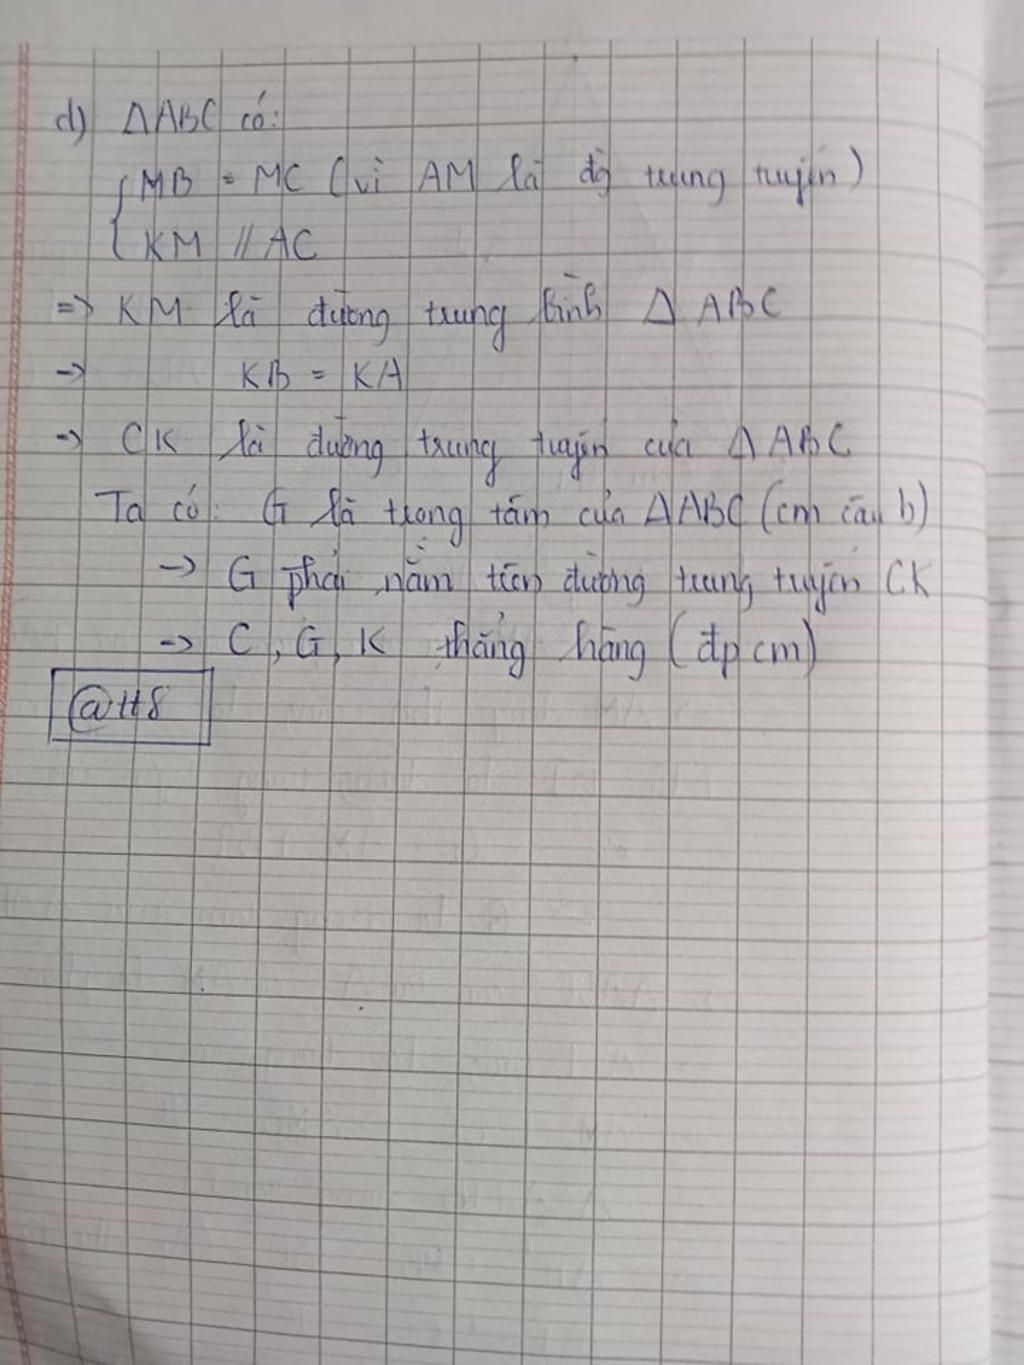 d) ΔABC có:
{ MB = MC (vì AM là đg trung tuyến)
KM // AC
=> KM là đường trung bình Δ ABC
-> KB = KA
-> CK là đường trung tuyến của Δ ABC
Ta có: G là trọng tâm của ΔABC (cm câu b)
-> G phải nằm trên đường trung tuyến CK
-> C, G, K thẳng hàng (đpcm)
@ H8